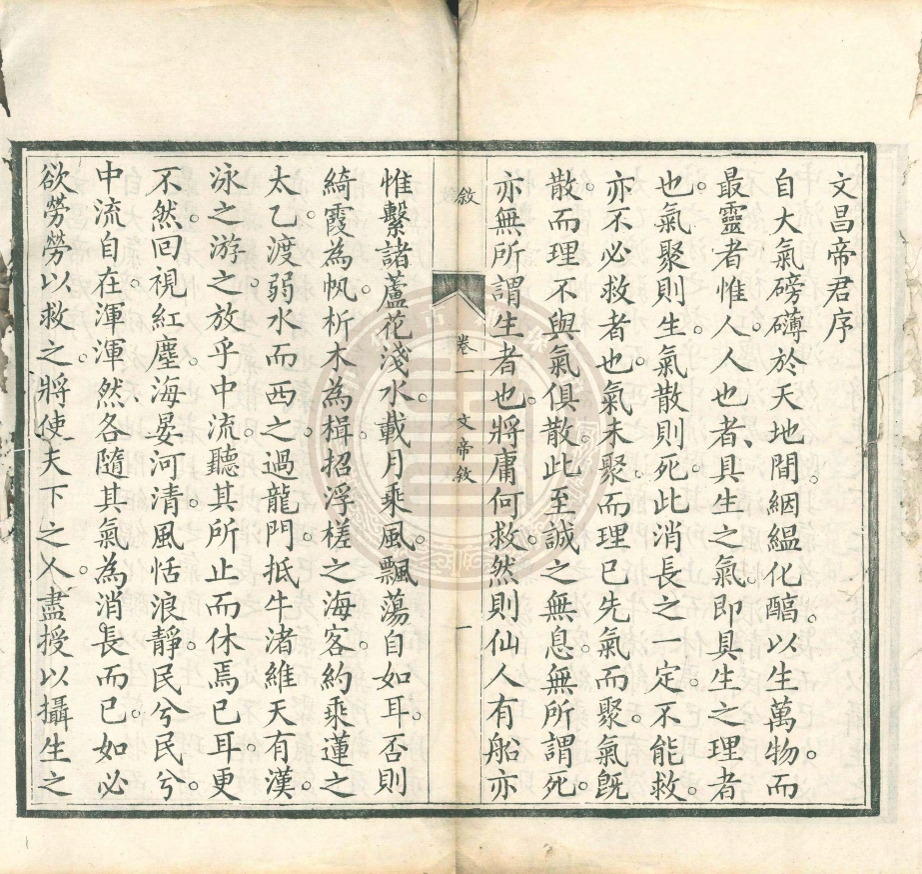 文昌帝君序
自大氣磅礴於天地間。絪縕化醕。以生萬物。而
最靈者惟人。人也者、具生之氣。即具生之理者
也。氣聚則生。氣散則死。此消長之一定。不能救。
亦不必救者也。氣未聚。而理已先氣而聚。氣旣
散。而理不與氣俱散。此至誠之無息。無所謂死。
亦無所謂生者也。將庸何救。然則仙人有船亦
敘
卷一
文帝敘
一
惟繫諸蘆花淺水。載月乘風。飄蕩自如耳。否則
綺霞為帆。析木為楫。招浮槎之海客。約乘蓮之
太乙。渡弱水而西之。過龍門。抵牛渚。維天有漢。
泳之游之。放乎中流。聽其所止而休焉已耳。更
不然。回視紅塵。海晏河清。風恬浪靜。民兮民兮。
中流自在。渾渾然、各隨其氣為消長而已。如必
欲勞勞以救之。將使天下之人。盡授以攝生之